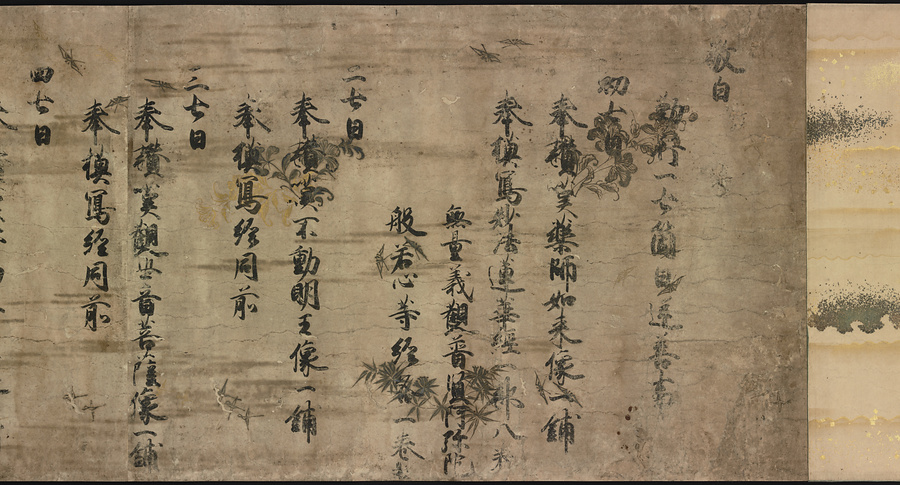 敬白
勤修一七箇日逆善事
初七日
奉攢笑藥師如来像一鋪
奉摸寫妙法蓮華経一部八
無量義觀普賢阿弥陀
般若心等経各一巻
二七日
奉攢笑不動明王像一鋪
奉摸寫経同前
三七日
奉攢笑觀世音菩薩像一鋪
奉摸寫経同前
四七日